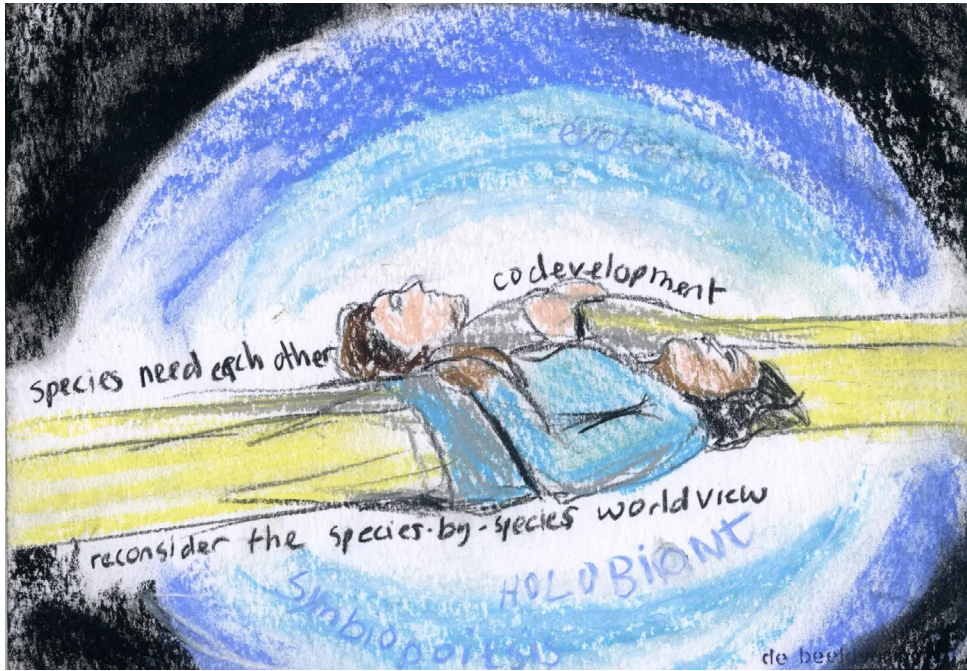 codevelopment
species need each other
reconsider the species-by-species worldview
HOLOBIONT
Symbiopoitsis
de